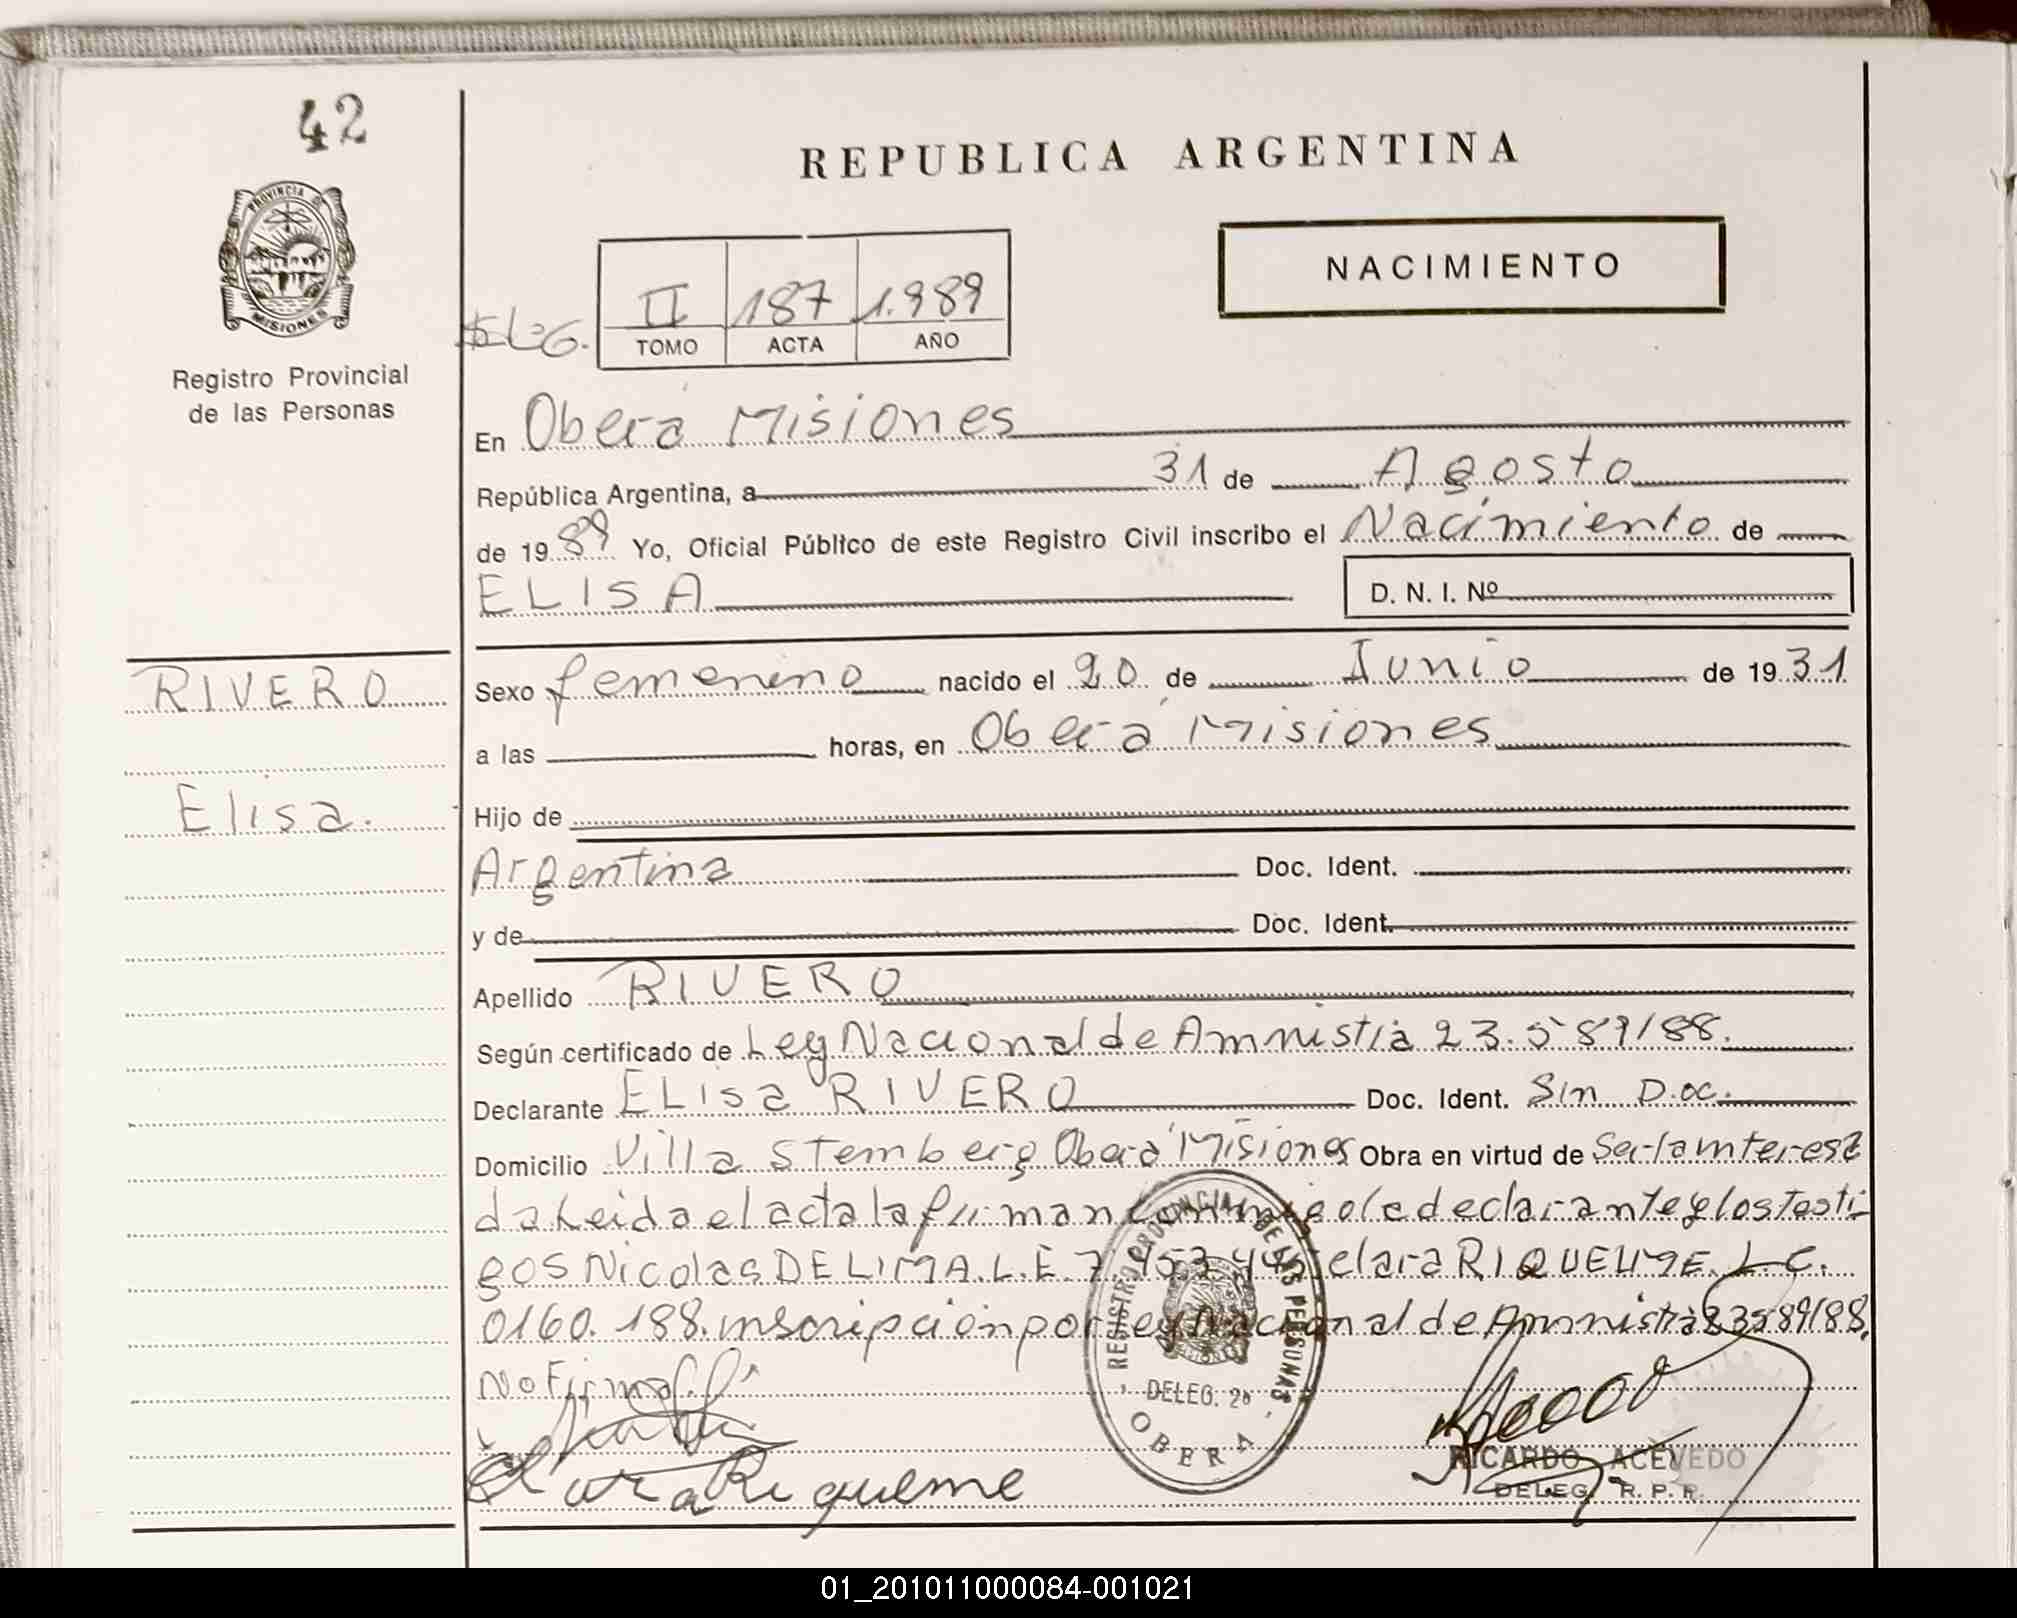 42
PROVINCIA DE
MISIONES
Registro Provincial
de las Personas
RIVERO
Elisa.
REPUBLICA ARGENTINA
NACIMIENTO
II 187 1.989
TOMO ACTA AÑO
En Oberá Misiones
República Argentina, a 31 de Agosto
de 1989 Yo, Oficial Público de este Registro Civil inscribo el Nacimiento de
ELISA D. N. I. Nº
Sexo femenino nacido el 20 de Junio de 1931
a las horas, en Oberá Misiones
Hijo de
Argentina Doc. Ident.
y de Doc. Ident.
Apellido RIVERO
Según certificado de Ley Nacional de Amnistia 23.589/88.
Declarante ELisa RIVERO Doc. Ident. Sin Doc.
Domicilio Villa Stemberg Oberá Misiones Obra en virtud de Ser la interesa
da Leida el acta la firman conmigo la declarante y los testi-
gos Nicolas DE LIMA. L.E. 7 453 Clara RIQUELME. L.C.
0160.188. inscripción por Ley Nacional de Amnistia 23589/88.
No Firma
Clara Riqueme
REGISTRO PROVINCIAL DE LAS PERSONAS
DELEG. 2ª
OBERA
RICARDO ACEVEDO
DELEG. R. P. R.
01_201011000084-001021